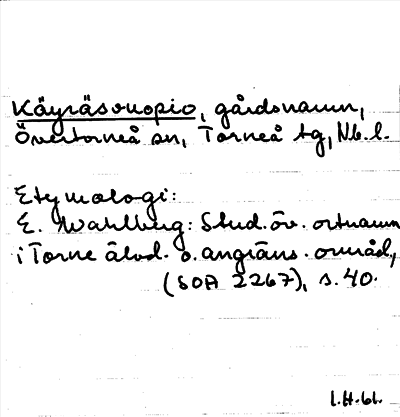 Käyräsvuopio, gårdsnamn,
Övertorneå sn, Torneå tg, Nb. l.
Etymologi:
E. Wahlberg: Stud. öv. ortnamn
i Torne älvd. o. angräns. områd,
(SOA 2267), s. 40.
I.H-61.